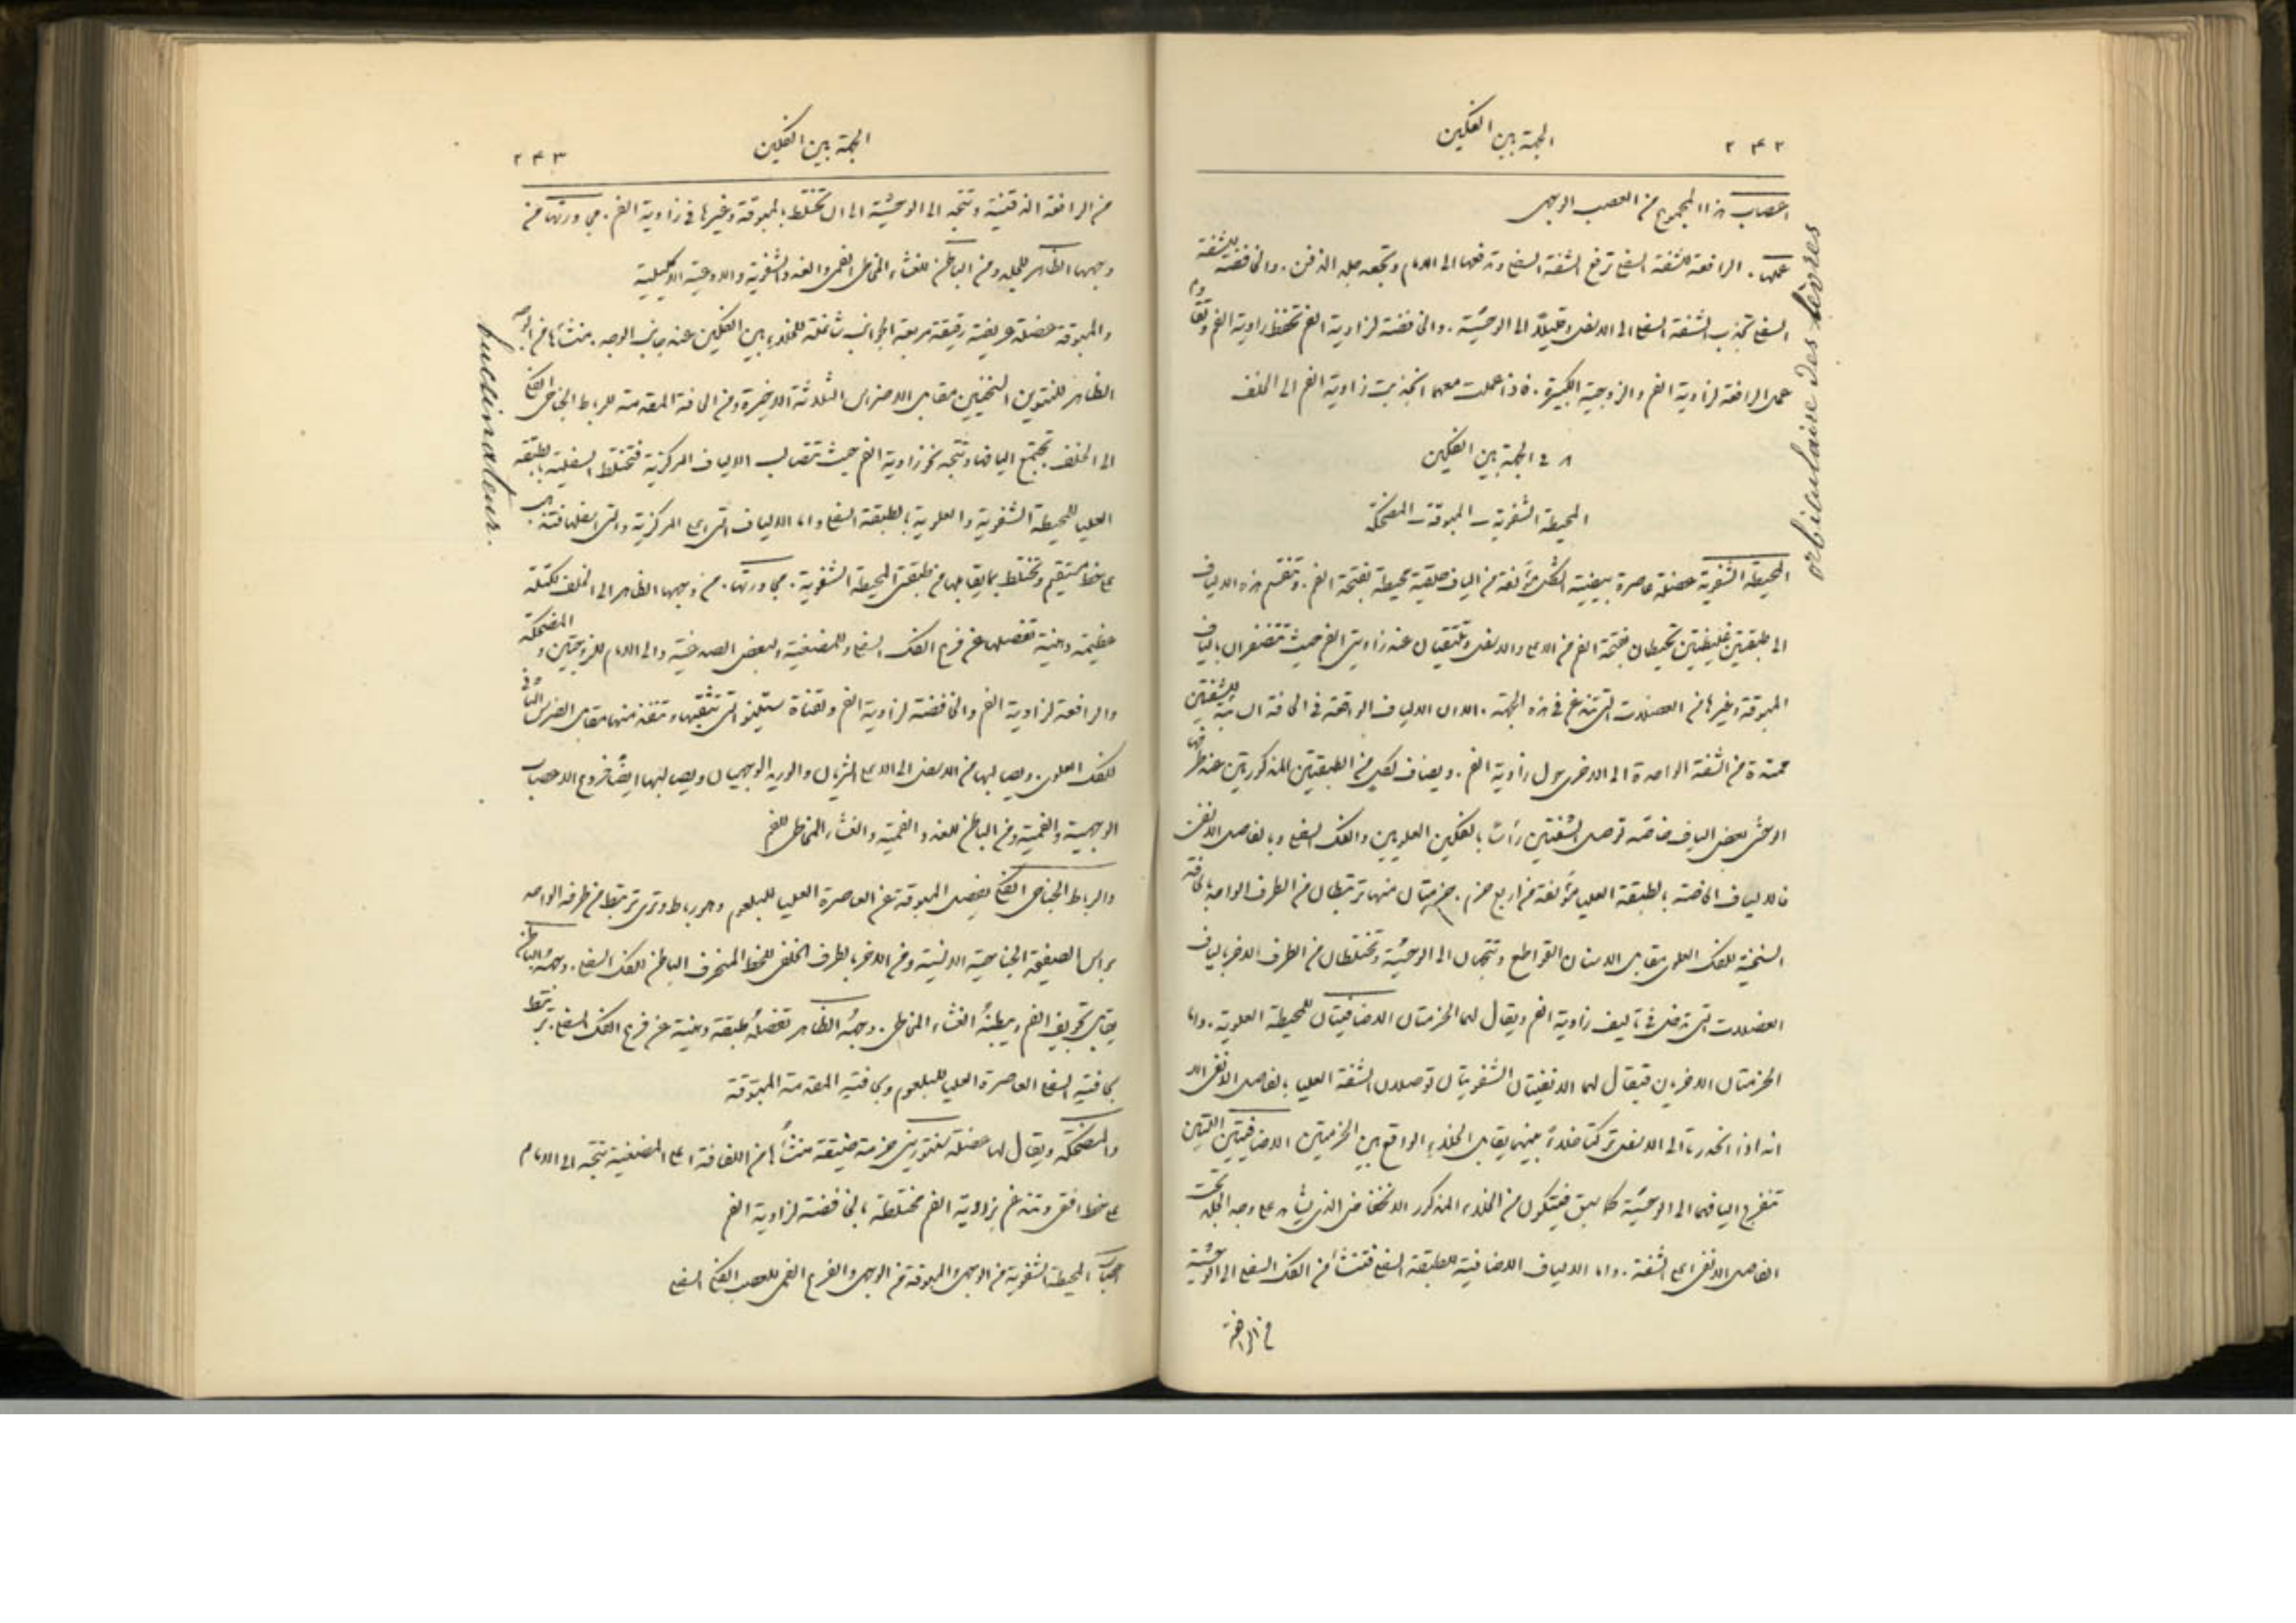 ٢٤٢
الجهة بين الفكين
اعصاب هذا المجموع من العصب الوجهي
عملها . الرافعة للشفة السفلى ترفع الشفة السفلى وتدفعها الى الامام وتجعد جلد الذقن . والخافضة للشفة
السفلى تجذب الشفة السفلى الى الاسفل وقليلاً الى الوحشية . والخافضة لزاوية الفم تخفض زاوية الفم وتقاوم
عمل الرافعة لزاوية الفم والزوجية الكبيرة . فاذا عملت معهما انجذبت زاوية الفم الى الخلف
٨ في الجهة بين الفكين
المحيطة الشفوية ــ المبوقة ــ المضحكة
المحيطة الشفوية عضلة عاصرة بيضية الشكل مؤلفة من الياف حلقية محيطة بفتحة الفم . وتنقسم هذه الالياف
الى طبقتين غليظتين تحيطان بفتحة الفم من الاعلى والاسفل وتلتقيان عند زاويتي الفم حيث تتضفران بالياف
المبوقة وغيرها من العضلات التي تندغم في هذه الجهة . الا ان الالياف الواقعة في الحافة السائبة للشفتين
ممتدة من الشفة الواحدة الى الاخرى حول زاوية الفم . ويضاف لكل من الطبقتين المذكورتين عند طرفها
الوحشي بعض الياف خاصة توصل الشفتين رأساً بالفكين العلويين والفك السفلي وبالفاصل الانفي
فالالياف الخاصة بالطبقة العليا مؤلفة من اربع حزم . حزمتان منها ترتبطان من الطرف الواحد بالحافة
السنخية للفك العلوي مقابل الاسنان القواطع وتتجهان الى الوحشية وتختلطان من الطرف الاخر بالياف
العضلات التي تدخل في تأليف زاوية الفم ويقال لهما الحزمتان الاضافيتان للمحيطة العلوية . واما
الحزمتان الاخريان فيقال لهما الانفيتان الشفويتان توصلان الشفة العليا بالفاصل الانفي الا
انه اذا انحدرتا الى الاسفل تركتا خلاءً بينهما يقابل الخلاء الواقع بين الحزمتين الاضافيتين اللتين
تنفرج اليافهما الى الوحشية كما سبق فيتكون من الخلاء المذكور الانخفاض الذي يشاهد على وجه الجلد تحت
الفاصل الانفي اعلى الشفة . واما الالياف الاضافية للطبقة السفلى فتنشأ من الفك السفلي الى الوحشية
من الرافعة
orbiculaire des lèvres
٢٤٣
الجهة بين الفكين
من الرافعة الذقنية وتتجه الى الوحشية الى ان تختلط بالمبوقة وغيرها في زاوية الفم . مجاورتها من
وجهها الظاهر للجلد ومن الباطن للغشاء المخاطي الفمي والغدد الشفوية والاوعية الاكليلية
والمبوقة عضلة عريضة رقيقة مربعة الجوانب شاغلة للخلاء بين الفكين عند جانب الوجه . منشأها من الوجه
الظاهر للنتوين السنخيين مقابل الاضراس الثلاثة الاخيرة ومن الحافة المقدمة للرباط الجناحي الفكي
الى الخلف تجتمع اليافها وتتجه نحو زاوية الفم حيث تتصالب الالياف المركزية فتختلط السفلية بالطبقة
العليا للمحيطة الشفوية والعلوية بالطبقة السفلى واما الالياف التي اعلى المركزية والتي اسفلها فتنساب
على خط مستقيم وتختلط بما يقابلها من طبقتي المحيطة الشفوية . مجاورتها . من وجهها الظاهر الى الخلف لكتلة
عظيمة دهنية تفصلها عن فرع الفك السفلي وللمضغية ولبعض الصدغية والى الامام للزوجيتين والمضحكة
والرافعة لزاوية الفم والخافضة لزاوية الفم ولقناة ستينو التي تثقبها وتنفذ منها مقابل الضرس الثاني
للفك العلوي . ويصالبها من الاسفل الى الاعلى الشريان والوريد الوجهيان ويصالبها ايضاً فروع الاعصاب
الوجهية والفمية ومن الباطن للغدد الفمية والغشاء المخاطي للفم
والرباط الجناحي الفكي يفصل المبوقة عن العاصرة العليا للبلعوم وهو رباط وتري ترتبط من طرفه الواحد
براس الصفيحة الجناحية الانسية ومن الاخر بالطرف الخلفي للخط المنحرف الباطن للفك السفلي . وجهه الباطن
يقابل تجويف الفم ويبطنه الغشاء المخاطي . وجهه الظاهر تفصله طبقة دهنية عن فرع الفك السفلي . ترتبط
بحافته السفلى العاصرة العليا للبلعوم وبحافته المقدمة المبوقة
والمضحكة ويقال لها عضلة سنتوريني حزمة ضيقة منشأها من اللفافة اعلى المضغية تتجه الى الامام
على خط افقي وتندغم بزاوية الفم مختلطة بالخافضة لزاوية الفم
اعصاب المحيطة الشفوية من الوجهي والمبوقة من الوجهي والفرع الفمي للعصب الفكي السفلي
buccinateur.